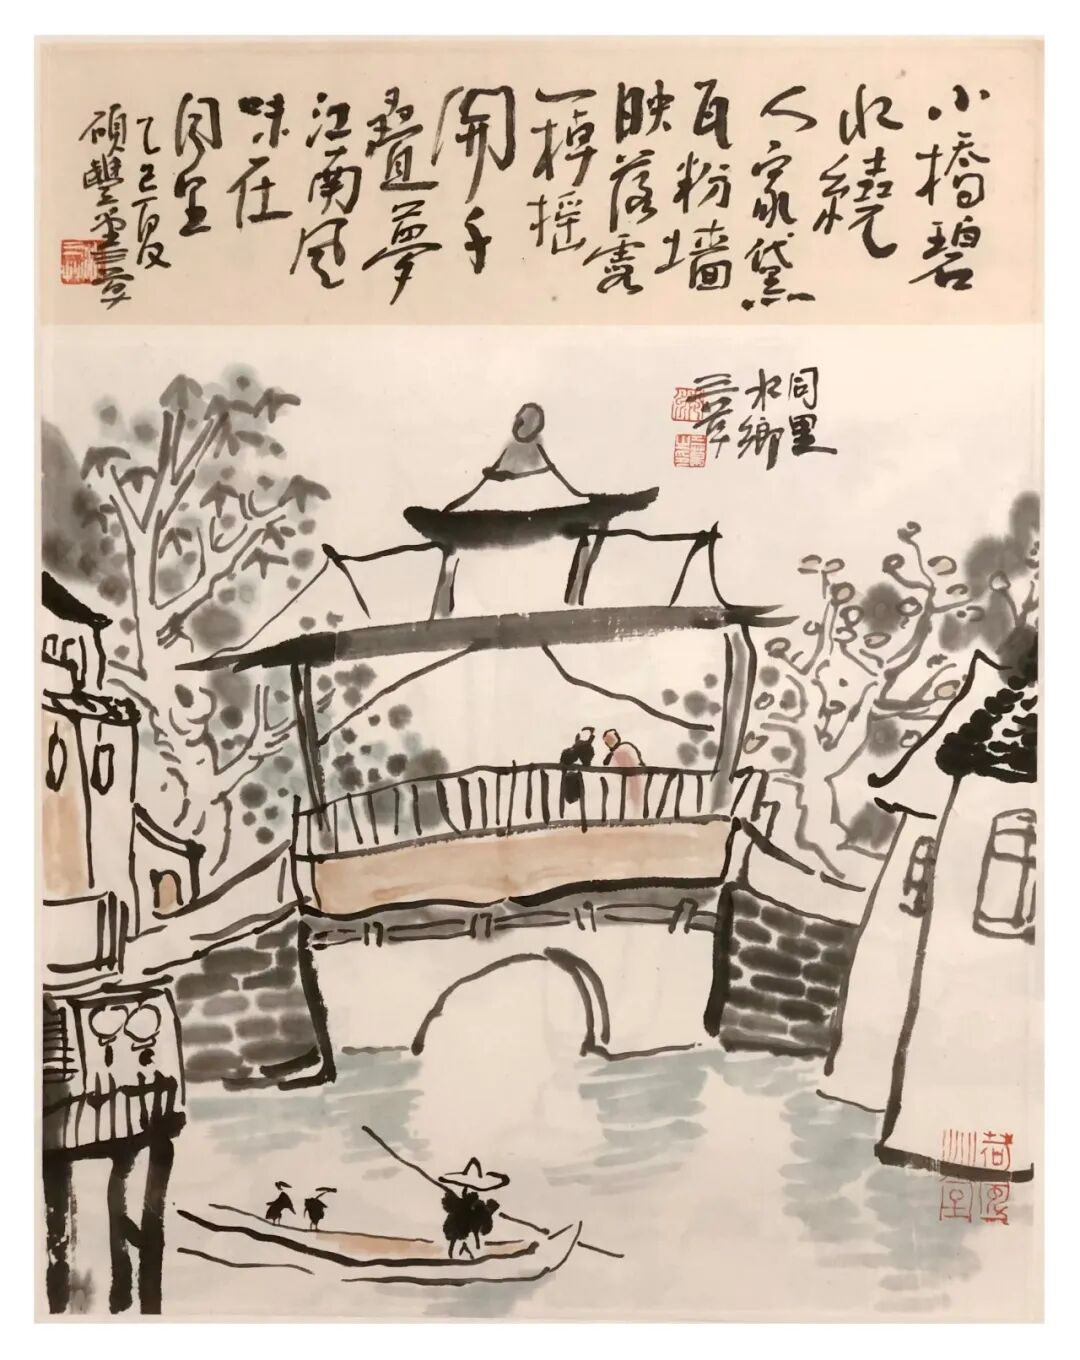 小橋碧
水繞
人家黛
瓦粉墙
映落霞
一棹摇
開千
疊夢
江南风
味在
同里
乙巳夏
碩豐堂
同里
水鄉